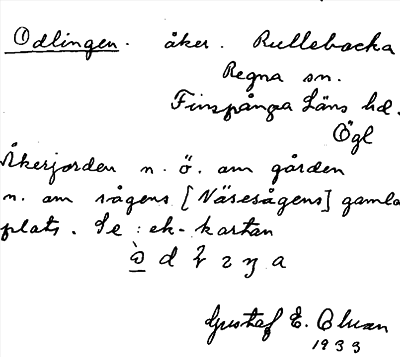 Odlingen. åker. Rullebacka
Regna sn.
Finspånga Läns hd.
Ögl
Åkerjorden n. ö. om gården
n. om sågens [Näsesågens] gamla
plats. Se: ek-kartan
Gustaf E. Olsson
1933